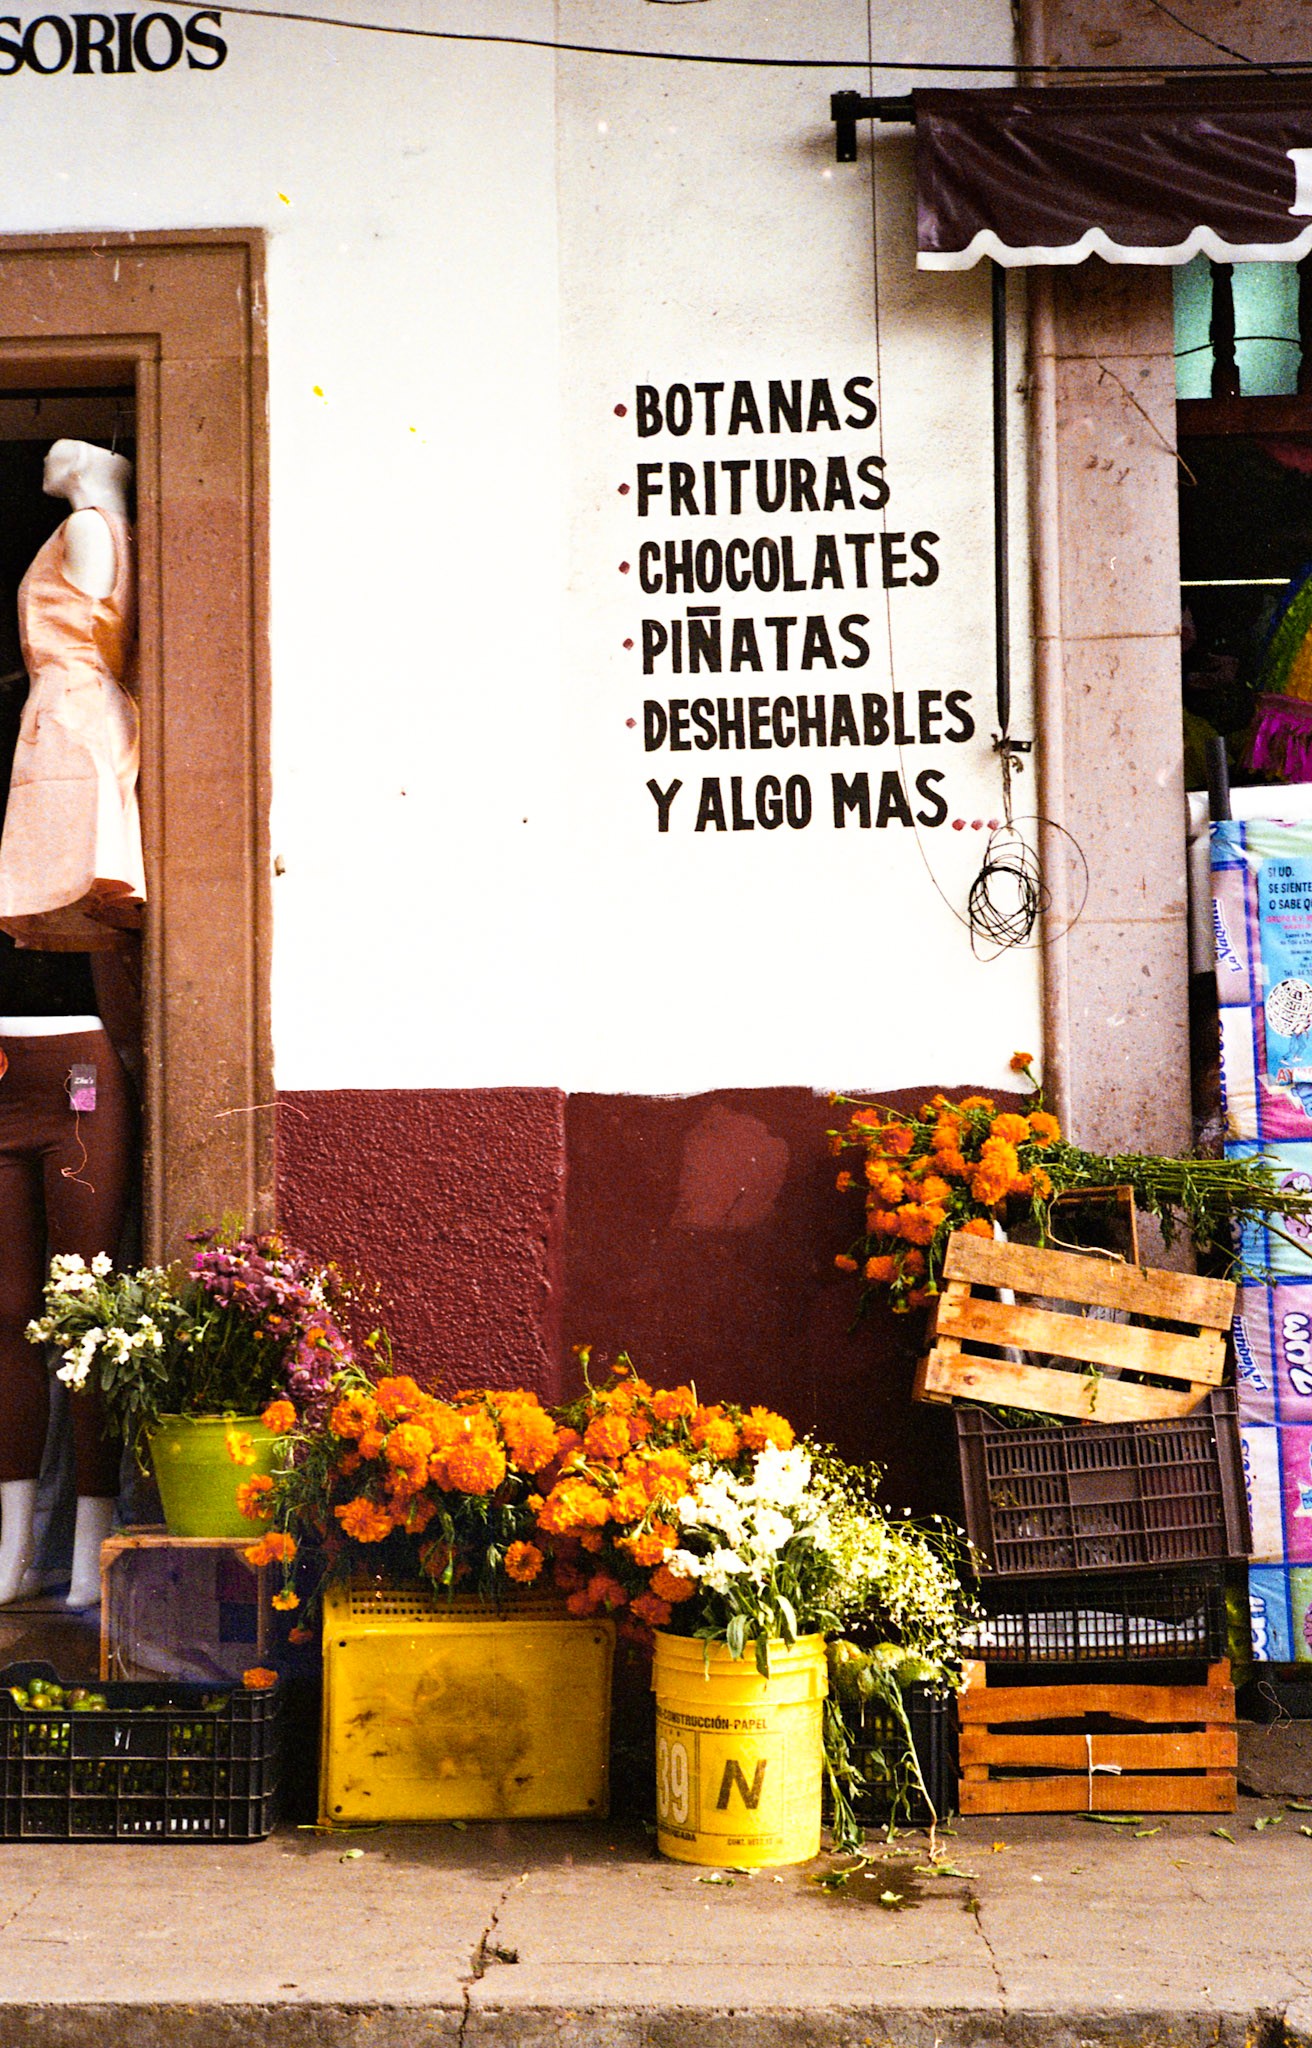 SORIOS
BOTANAS
FRITURAS
CHOCOLATES
PIÑATAS
DESHECHABLES
Y ALGO MAS...
SI UD.
SE SIENTE
O SABE
La Vaquita
La Vaquita
CONSTRUCCIÓN-PAPEL
39
N